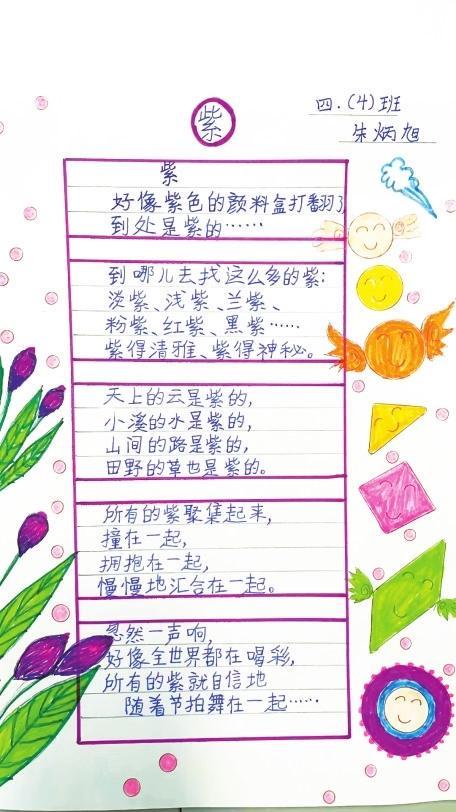 紫
四.(4)班
朱炳旭
紫
好像紫色的颜料盒打翻了
到处是紫的……
到哪儿去找这么多的紫:
淡紫、浅紫、兰紫、
粉紫、红紫、黑紫……
紫得清雅、紫得神秘。
天上的云是紫的,
小溪的水是紫的,
山间的路是紫的,
田野的草也是紫的。
所有的紫聚集起来,
撞在一起,
拥抱在一起,
慢慢地汇合在一起。
忽然一声响,
好像全世界都在喝彩,
所有的紫就自信地
随着节拍舞在一起……